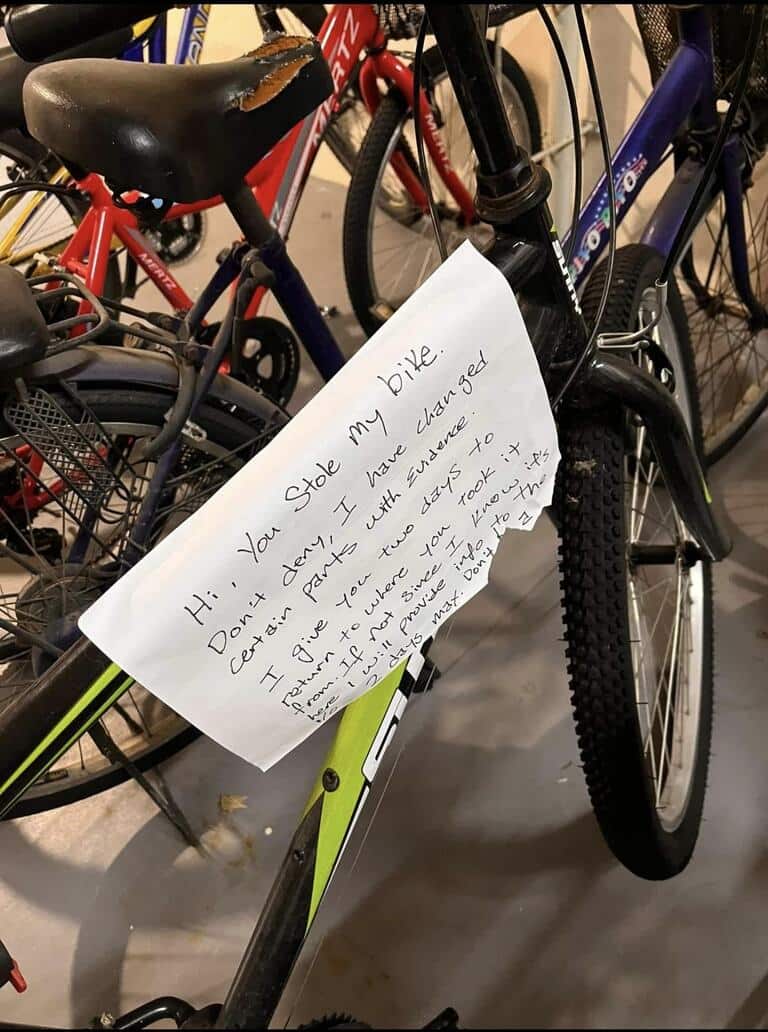 Hi, You Stole My bike.
Don't deny, I have changed
certain parts with Evidence.
I give you two days to
return to where you took it
from. If not since I know it's
here I will provide info to the
2 days max. Don't
MERTZ
MERTZ
MERTZ